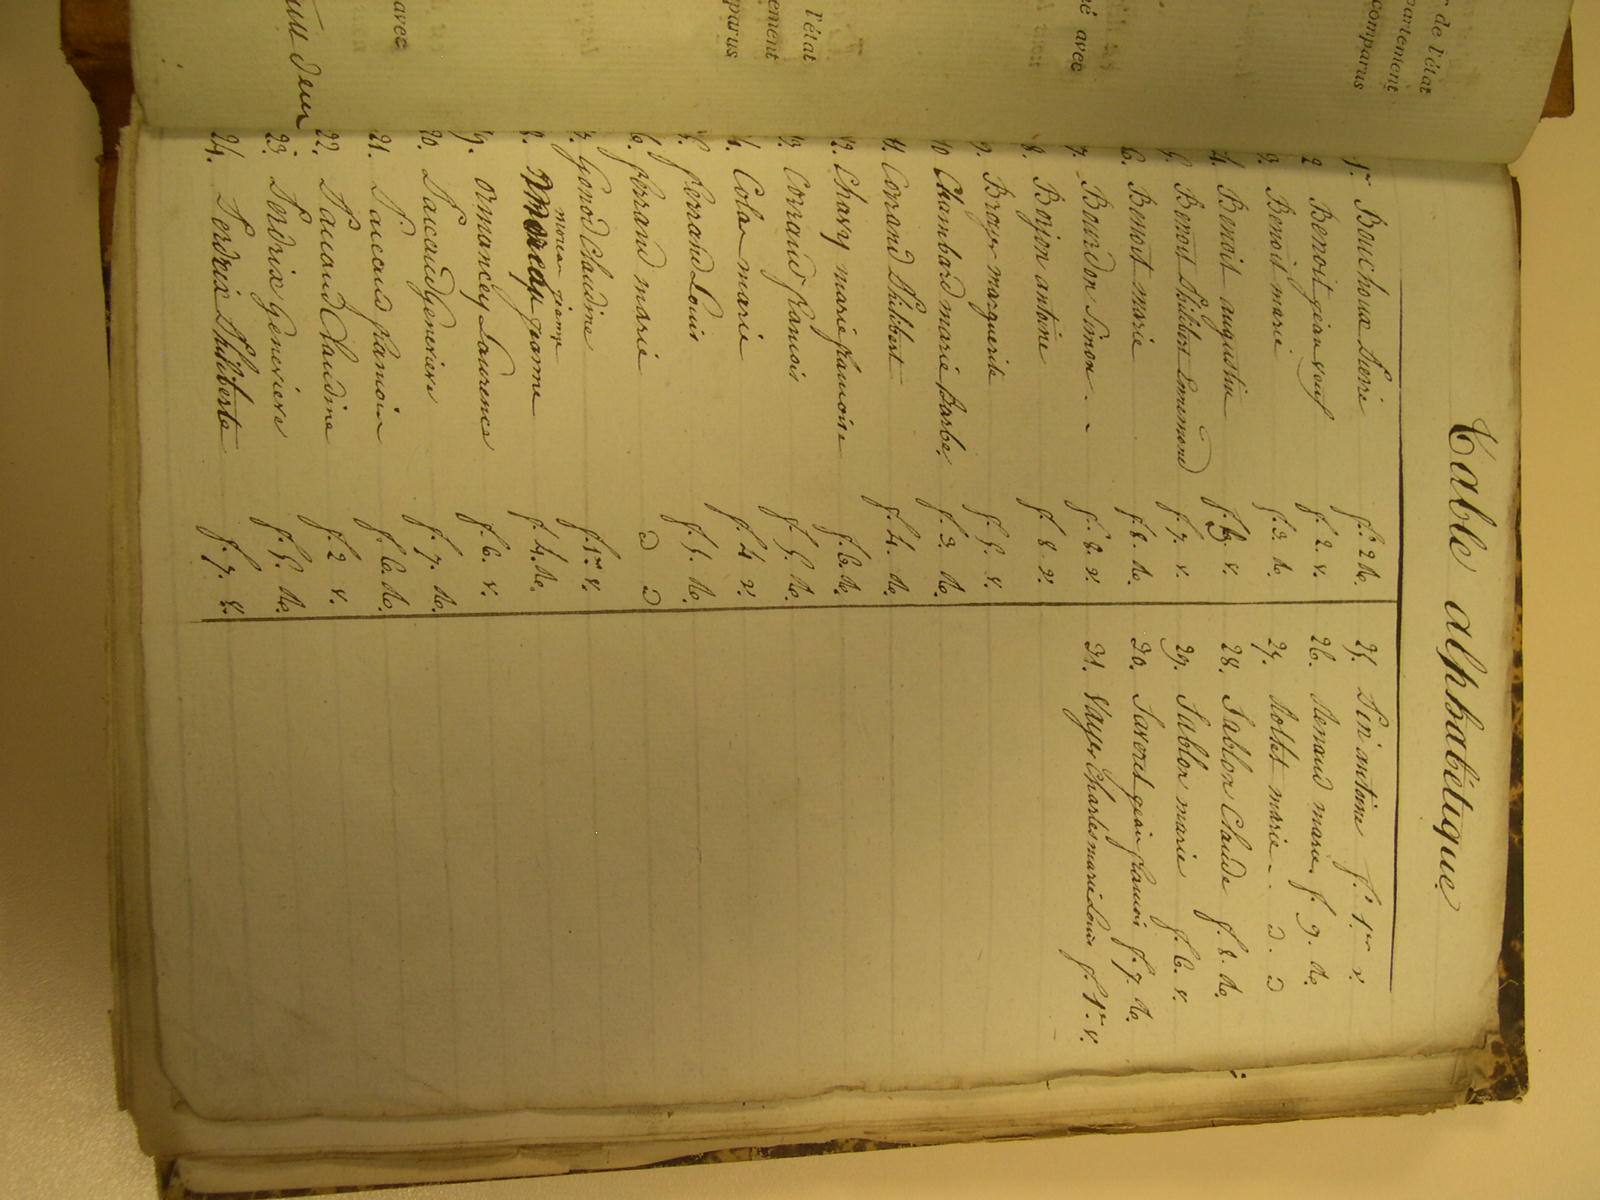 Table alphabétique
1er. Bouchoux Pierre f. 2 Ro.
2 Benoit jean veuf f. 2 v.
3. Benoit marie f. 3 Ro.
4. Benoit augustin f. 6. v.
5. Benoit Philibert Emremond f. 7. v.
6. Benoit marie f. 8. Ro.
7. Bourdon Simon. f. 8 v.
8. Borjon antoine f. 8 v.
9. Broyer marguerite f. 5. v.
10 Chambard marie Barbe. f. 3. Ro.
11. Corrand Philibert f. 4. Ro.
12. Chavy marie francoise f. 6. Ro.
13. Corrand francois f. 5. Ro.
14. Colas marie f. 4 v.
15. ferrand Louis f. 5. Ro.
16. ferrand marie D D
17. Gonod Claudine f. 1er v.
moreau jeanne
18. jeanne f. 4. Ro.
19. ormancey Laurence f. 6. v.
20. Pacaud genevieve f. 7. Ro.
21. Pacaud francois f. 6. Ro.
22. Pacaud Claudine f. 2 v.
23. Perdrix Genevieve f. 5. Ro.
24. Perdrix Philiberte f. 7. v.
25. Pin antoine f. 1er v.
26. Renaud marie f. 9. Ro.
27. Rollet marie. D. D
28. Sablon Claude f. 8. Ro.
29. Sablon marie f. 6. v.
30. Saveret jean francois f. 7. Ro.
31. Vayer Charles marie Louis f. 1er. v.
r de l'état
partement
comparus
é avec
l'état
ement
parus
avec